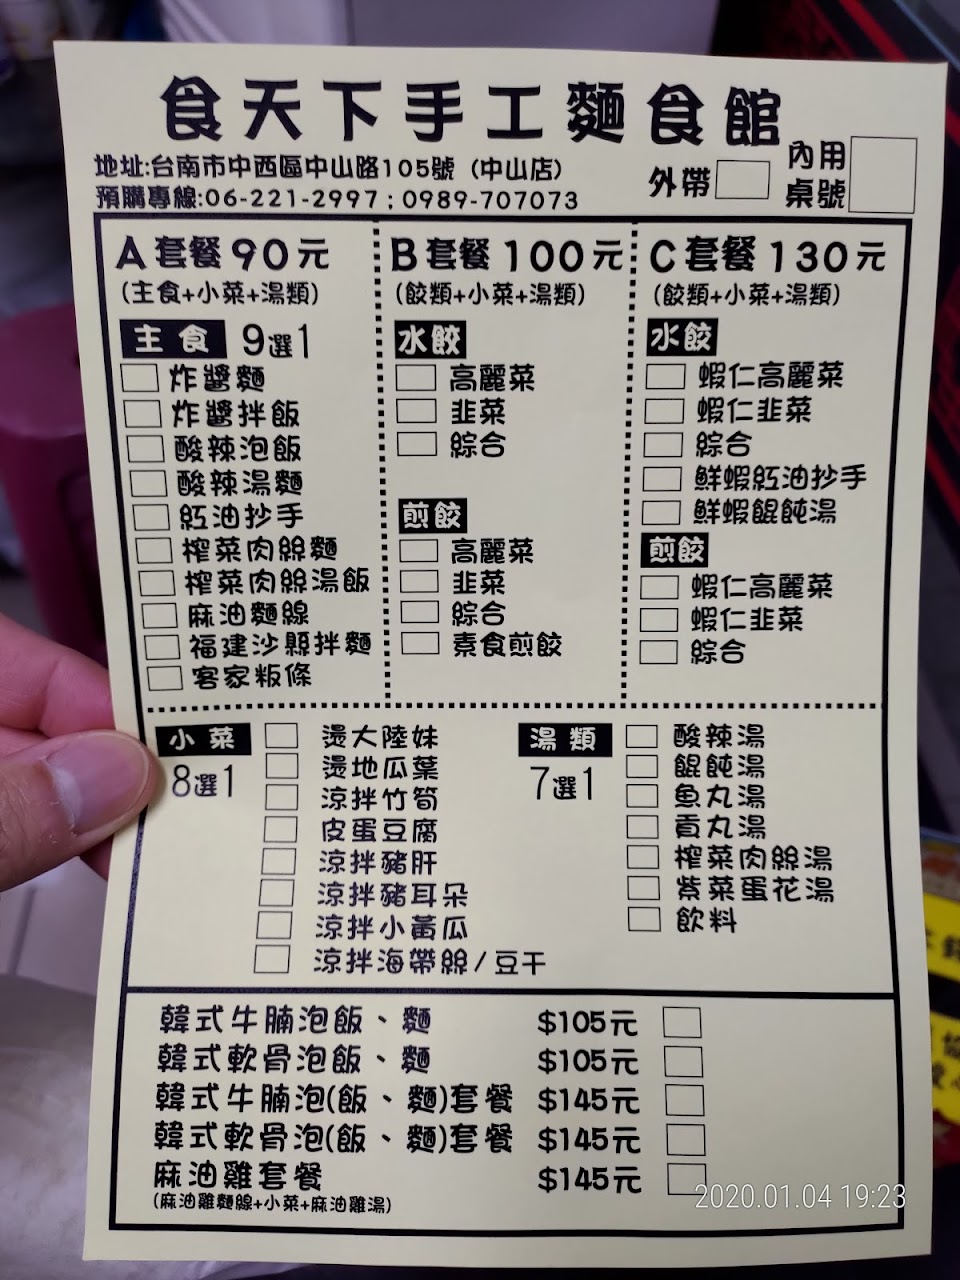 食天下手工麵食館
地址:台南市中西區中山路105號 (中山店)
預購專線:06-221-2997 ; 0989-707073
外帶
內用
桌號
A 套餐 90 元
(主食+小菜+湯類)
主食 9選1
炸醬麵
炸醬拌飯
酸辣泡飯
酸辣湯麵
紅油抄手
榨菜肉絲麵
榨菜肉絲湯飯
麻油麵線
福建沙縣拌麵
客家粄條
B 套餐 100 元
(餃類+小菜+湯類)
水餃
高麗菜
韭菜
綜合
煎餃
高麗菜
韭菜
綜合
素食煎餃
C 套餐 130 元
(餃類+小菜+湯類)
水餃
蝦仁高麗菜
蝦仁韭菜
綜合
鮮蝦紅油抄手
鮮蝦餛飩湯
煎餃
蝦仁高麗菜
蝦仁韭菜
綜合
小菜
8選1
燙大陸妹
燙地瓜葉
涼拌竹筍
皮蛋豆腐
涼拌豬肝
涼拌豬耳朵
涼拌小黃瓜
涼拌海帶絲/豆干
湯類
7選1
酸辣湯
餛飩湯
魚丸湯
貢丸湯
榨菜肉絲湯
紫菜蛋花湯
飲料
韓式牛腩泡飯、麵 $105元
韓式軟骨泡飯、麵 $105元
韓式牛腩泡(飯、麵)套餐 $145元
韓式軟骨泡(飯、麵)套餐 $145元
麻油雞套餐 $145元
(麻油雞麵線+小菜+麻油雞湯)
2020.01.04 19:23